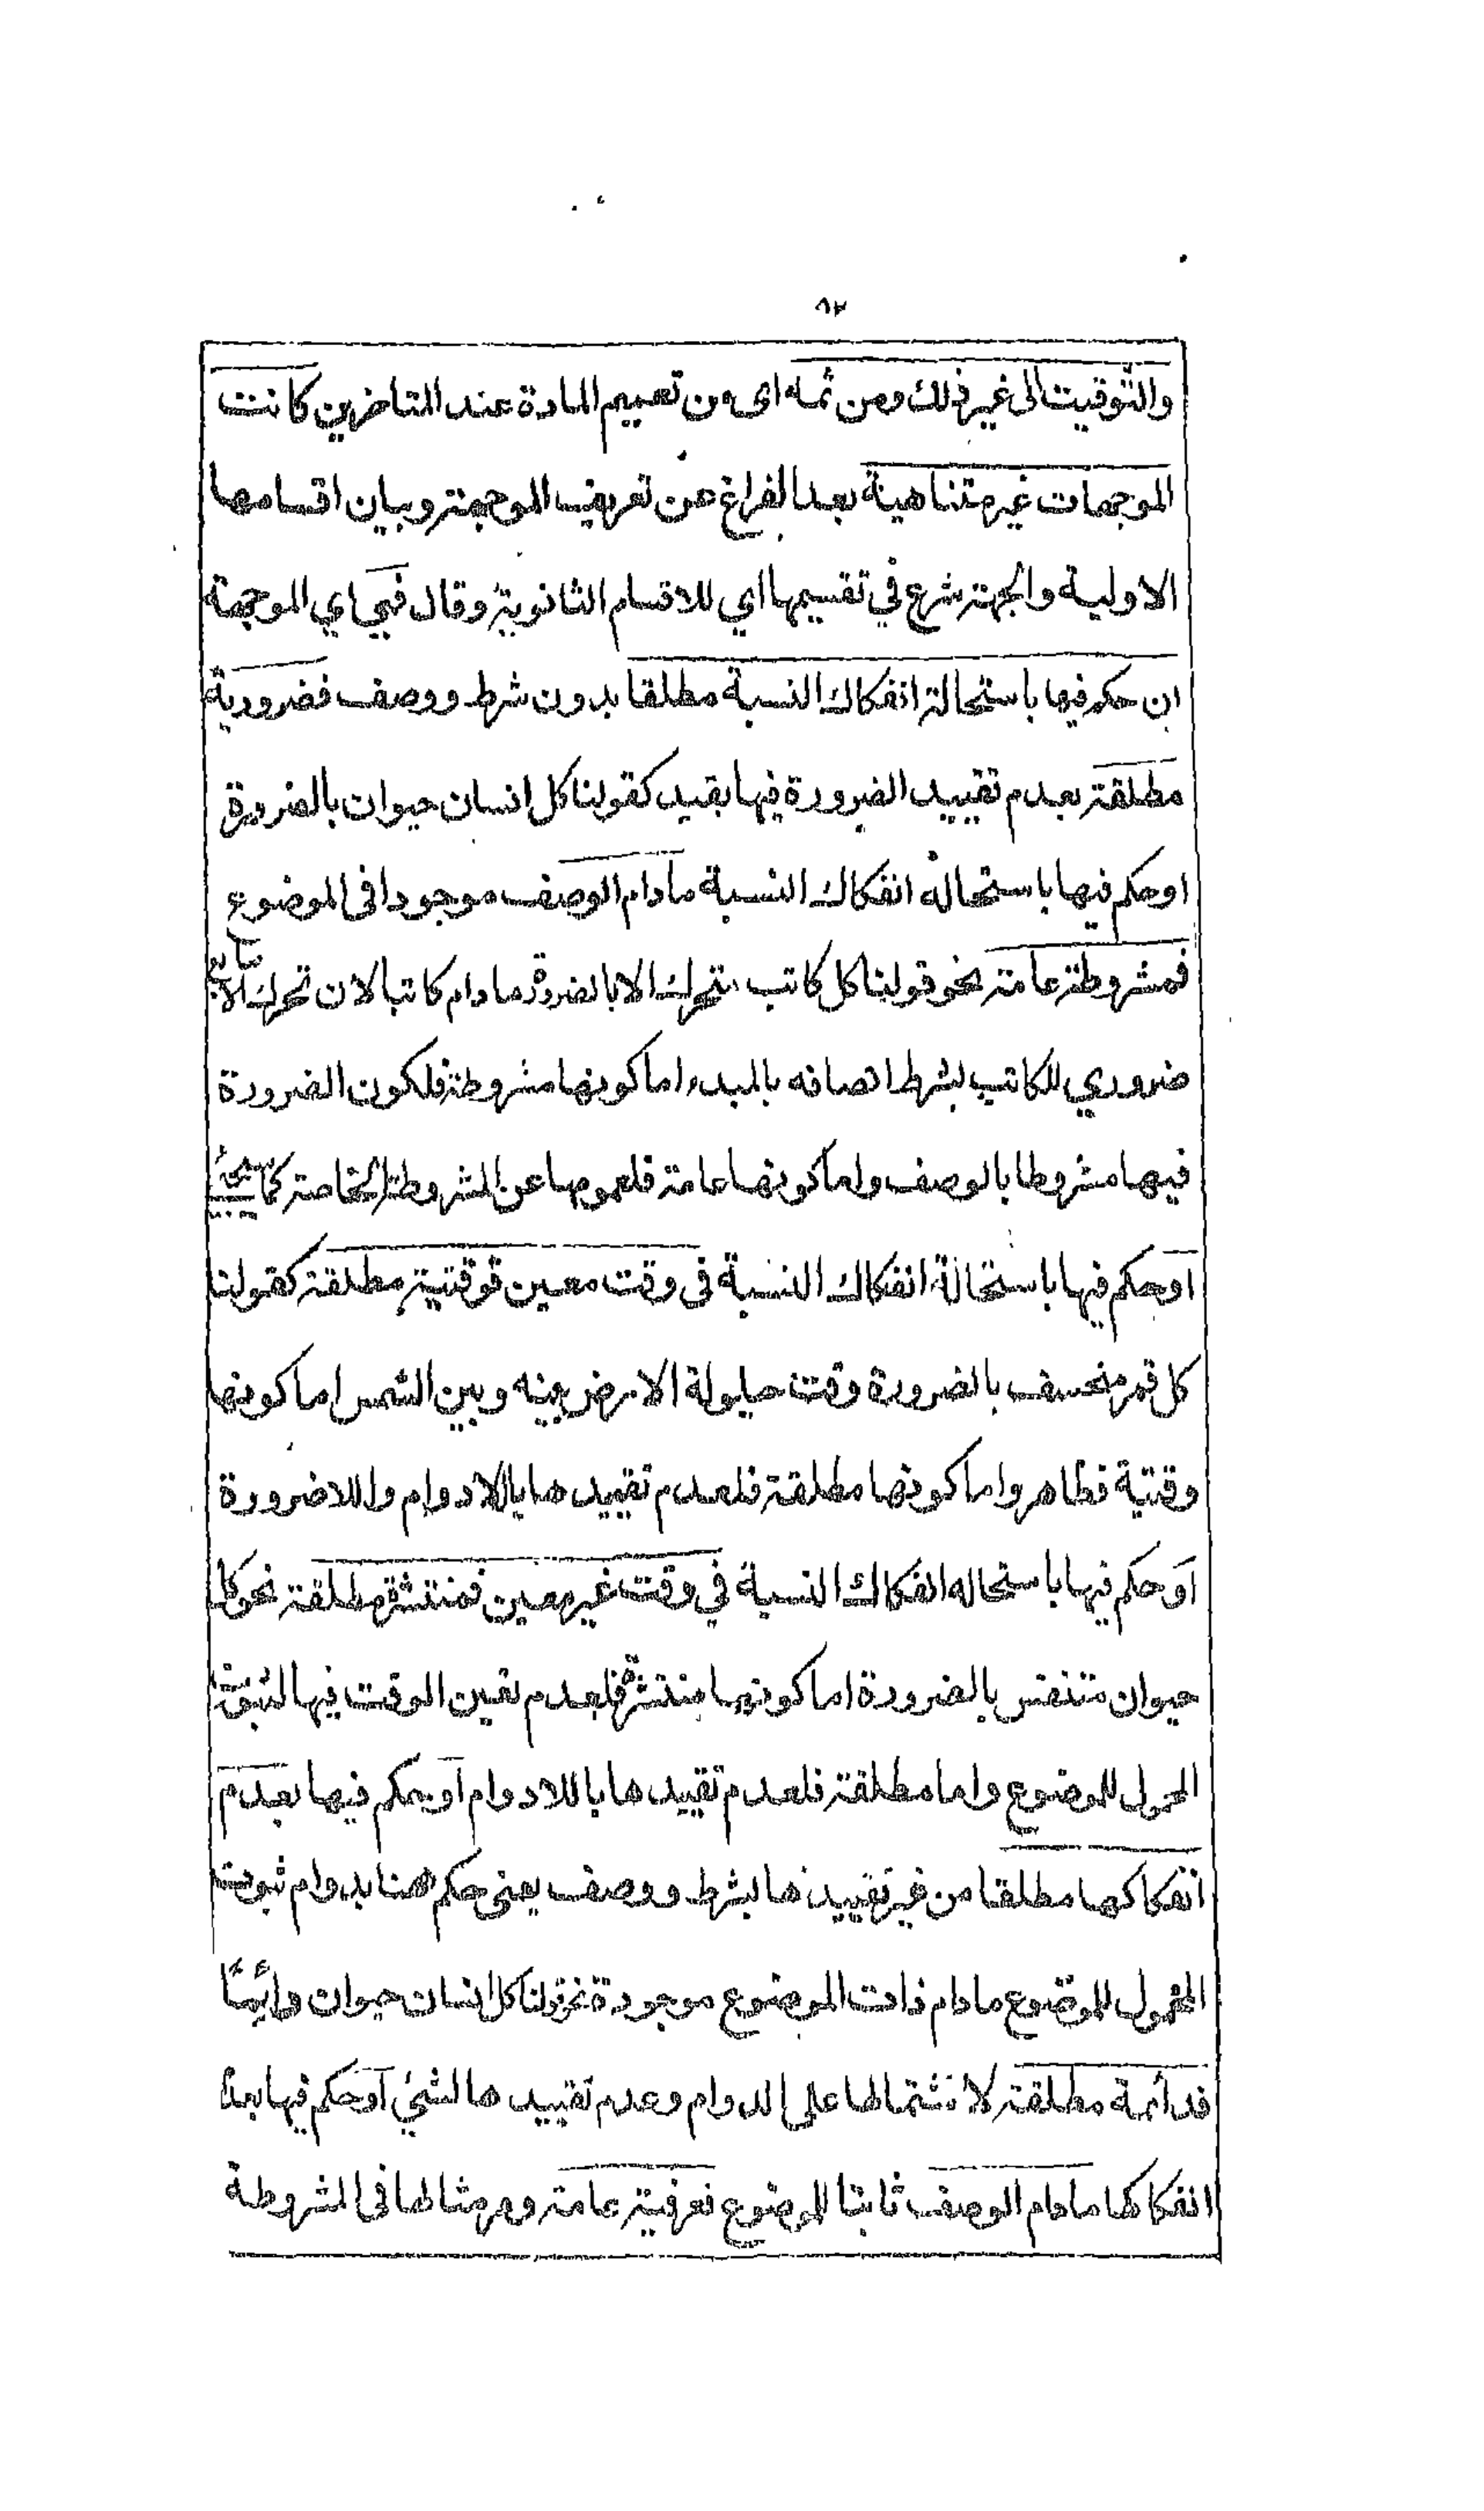 ٨٢
والتوقيت الى غير ذلك ومن ثمه اى من تعميم المادة عند المتاخرين كانت
الموجهات غير متناهية بعد الفراغ عن تعريف الموجهة وبيان اقسامها
الاولية والجهة شرع في تقسيمها اي للاقسام الثانوية وقال فهي اي الموجهة
ان حكم فيها باستحالة انفكاك النسبة مطلقا بدون شرط ووصف فضرورية
مطلقة بعدم تقييد الضرورة فيها بقيد كقولنا كل انسان حيوان بالضرورة
او حكم فيها باستحالة انفكاك النسبة مادام الوصف موجودا فى الموضوع
فمشروطة عامة نحو قولنا كل كاتب متحرك الا بالضرورة ما دام كاتبا لان تحرك الاصابع
ضروري للكاتب بشرط اتصافه بالمبدء اما كونها مشروطة فلكون الضرورة
فيها مشروطا بالوصف واما كونها عامة فلعمومها عن المشروطة الخاصة كما سيجئ
او حكم فيها باستحالة انفكاك النسبة فى وقت معين فوقتية مطلقة كقولنا
كل قمر منخسف بالضرورة وقت حيلولة الارض بينه وبين الشمس اما كونها
وقتية فظاهر واما كونها مطلقة فلعدم تقييدها باللادوام واللاضرورة
او حكم فيها باستحاله انفكاك النسبة في وقت غير معين فمنتشرة مطلقة نحو كل
حيوان متنفس بالضرورة اما كونها منتشرة فلعدم تعين الوقت فيها لثبوت
المحمول للموضوع واما مطلقة فلعدم تقييدها باللادوام او حكم فيها بعدم
انفكاكها مطلقا من غير تقييدها بشرط ووصف يعنى حكم ههنا بدوام ثبوت
المحمول للموضوع مادام ذات الموضوع موجودة نحو قولنا كل انسان حيوان دائمًا
فدائمة مطلقة لاشتمالها على الدوام وعدم تقييدها لشئ او حكم فيها بعدم
انفكاكها مادام الوصف ثابتا للموضوع فعرفية عامة ومر مثالها فى المشروطة